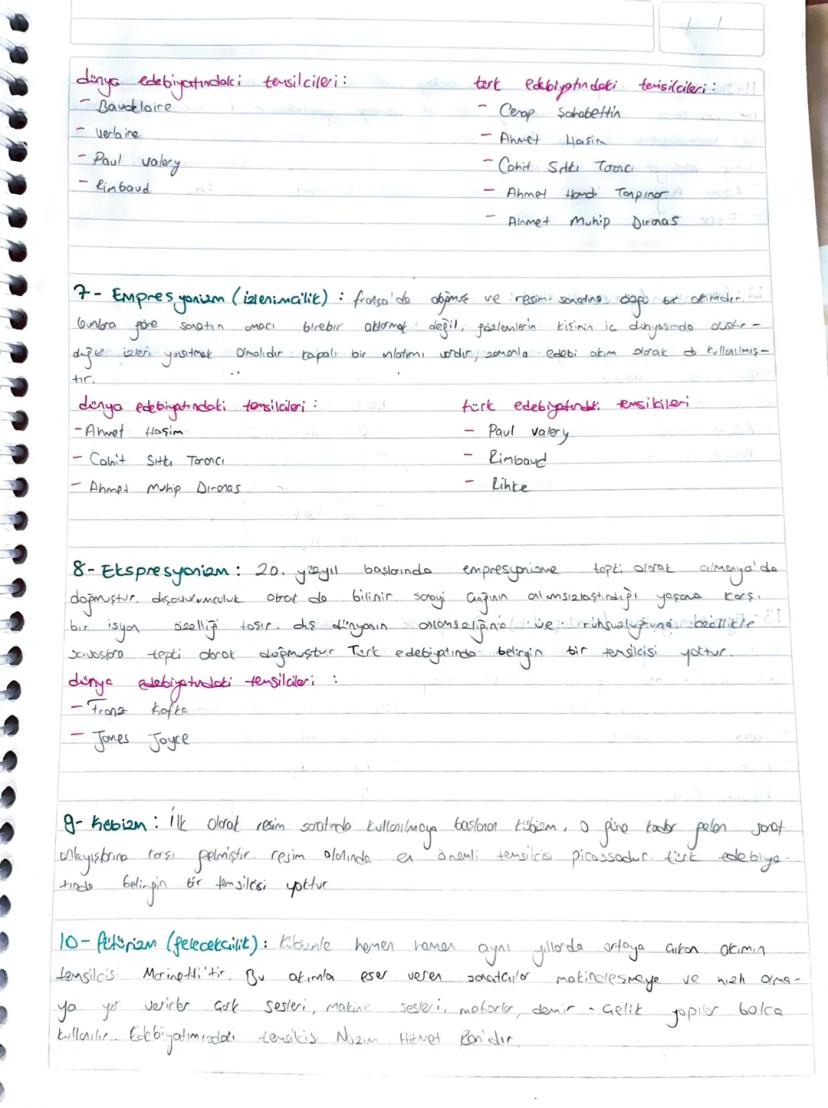 dünya edebiyatındaki temsilcileri :
- Baudelaire
- Verlaine
- Paul Valery
- Rimbaud
türk edebiyatındaki temsilcileri :
- Cenap Şahabettin
- Ahmet Haşim
- Cahit Sıtkı Tarancı
- Ahmet Hamdi Tanpınar
- Ahmet Muhip Dıranas
7- Empresyonizm (izlenimcilik) : fransa'da doğmuş ve resim sanatına özgü bir akımdır.
bunlara göre sanatın amacı birebir aktarmak değil, gözlemlerin kişinin iç dünyasında oluştur-
duğu izleri yansıtmak olmalıdır. kapalı bir anlatımı vardır, zamanla edebi akım olarak da kullanılmış-
tır.
dünya edebiyatındaki temsilcileri :
- Ahmet Haşim
- Cahit Sıtkı Tarancı
- Ahmet Muhip Dıranas
türk edebiyatındaki temsilcileri
- Paul Valery
- Rimbaud
- Rilke
8- Ekspresyonizm : 20. yüzyıl başlarında empresyonizme tepki olarak almanya'da
doğmuştur. dışavurumculuk olarak da bilinir. sanayi çağının anlamsızlaştırdığı yaşama karşı
bir isyan özelliği taşır. dış dünyanın anlamsızlığına ve ruhsuzluğuna özellikle
savaşlara tepki olarak doğmuştur Türk edebiyatında belirgin bir temsilcisi yoktur.
dünya edebiyatındaki temsilcileri :
- Franz Kafka
- James Joyce
9- Kübizm : İlk olarak resim sanatında kullanılmaya başlanan kübizm, o güne kadar gelen sanat
anlayışlarına karşı gelmiştir. resim alanında en önemli temsilcisi picassodur. türk edebiya-
tında belirgin bir temsilcisi yoktur
10- fütürizm (gelecekçilik) : Kübizmle hemen hemen aynı yıllarda ortaya çıkan akımın
temsilcisi Marinetti'tir. Bu akımla eser veren sanatçılar makineleşmeye ve hızlı olma-
ya yer verirler çark sesleri, makine sesleri, motorlar, demir - çelik yapılar bolca
kullanılır. Edebiyatımızdaki temsilcisi Nazım Hikmet Ran'dır.